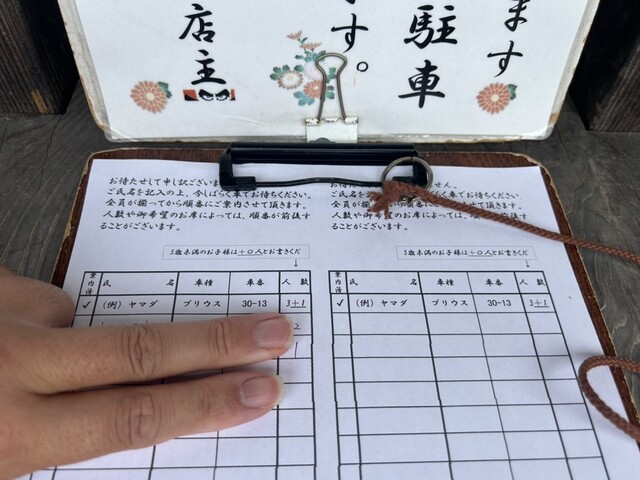 ます
駐車
す。
店主
お待たせして申し訳ございま
ご氏名を記入の上、今しばらく車でお待ちください。
全員が揃ってから順番にご案内させて頂きます。
人数や御希望のお席によっては、順番が前後す
ることがございます。
5歳未満のお子様は+0人とお書きくだ
↓
案内済 氏名 車種 車番 人数
✓ (例) ヤマダ プリウス 30-13 3+1
2
1
お待た せん。
ご氏名を くお車でお待ちください。
全員が揃ってから順番にご案内させて頂きます。
人数や御希望のお席によっては、順番が前後す
ることがございます。
5歳未満のお子様は+0人とお書きくだ
↓
案内済 氏名 車種 車番 人数
✓ (例) ヤマダ プリウス 30-13 3+1